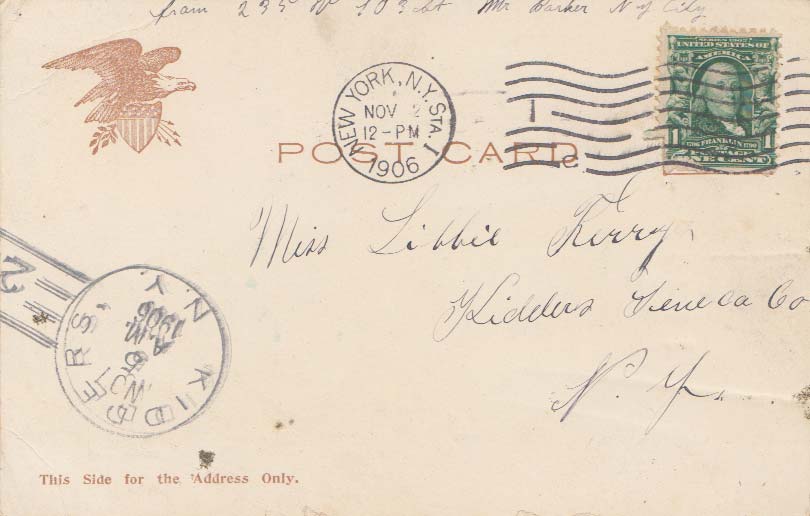 from 235 W 103 St Mr Barker N y City
NEW YORK, N.Y. STA. I
NOV 2
12-PM
1906
SERIES 1902
UNITED STATES OF
AMERICA
1 FRANKLIN 1
POSTAGE
ONE CENT
POST CARD
Miss Libbie Kerry
Kidders Seneca Co
N. Y.
KIDDERS, N.Y.
NOV
5
A.M.
1906
2
This Side for the Address Only.